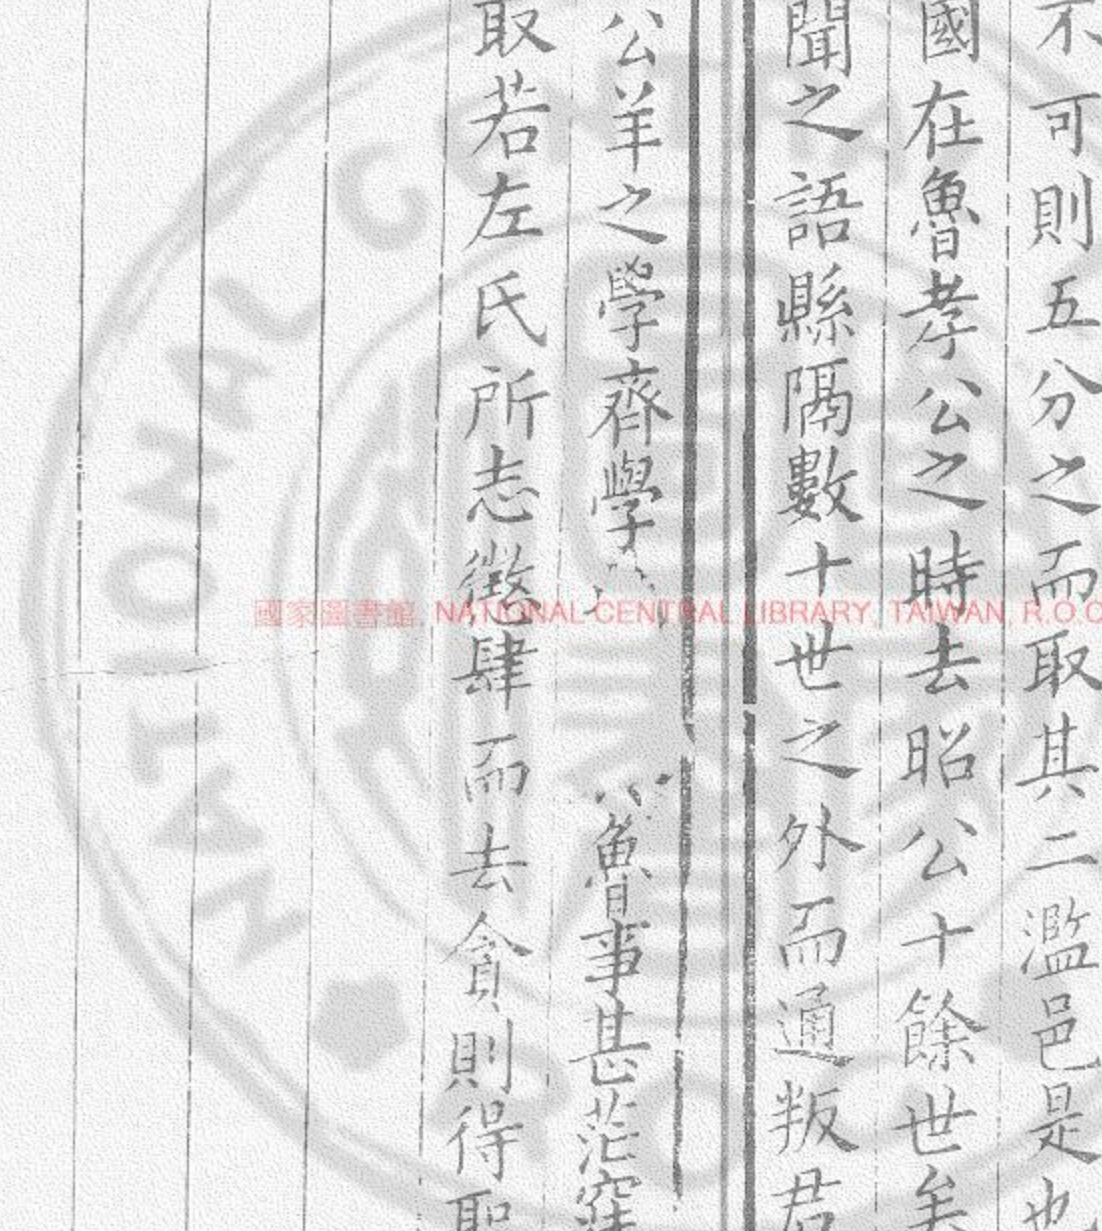 不可則五分之而取其二濫邑是也
國在魯孝公之時去昭公十餘世矣
聞之語縣隔數十世之外而通叛君
公羊之學齊學 魯事甚茫
取若左氏所志懲肆而去貪則得聖
國家圖書館, NATIONAL CENTRAL LIBRARY, TAIWAN, R.O.C
NATIONAL CENT